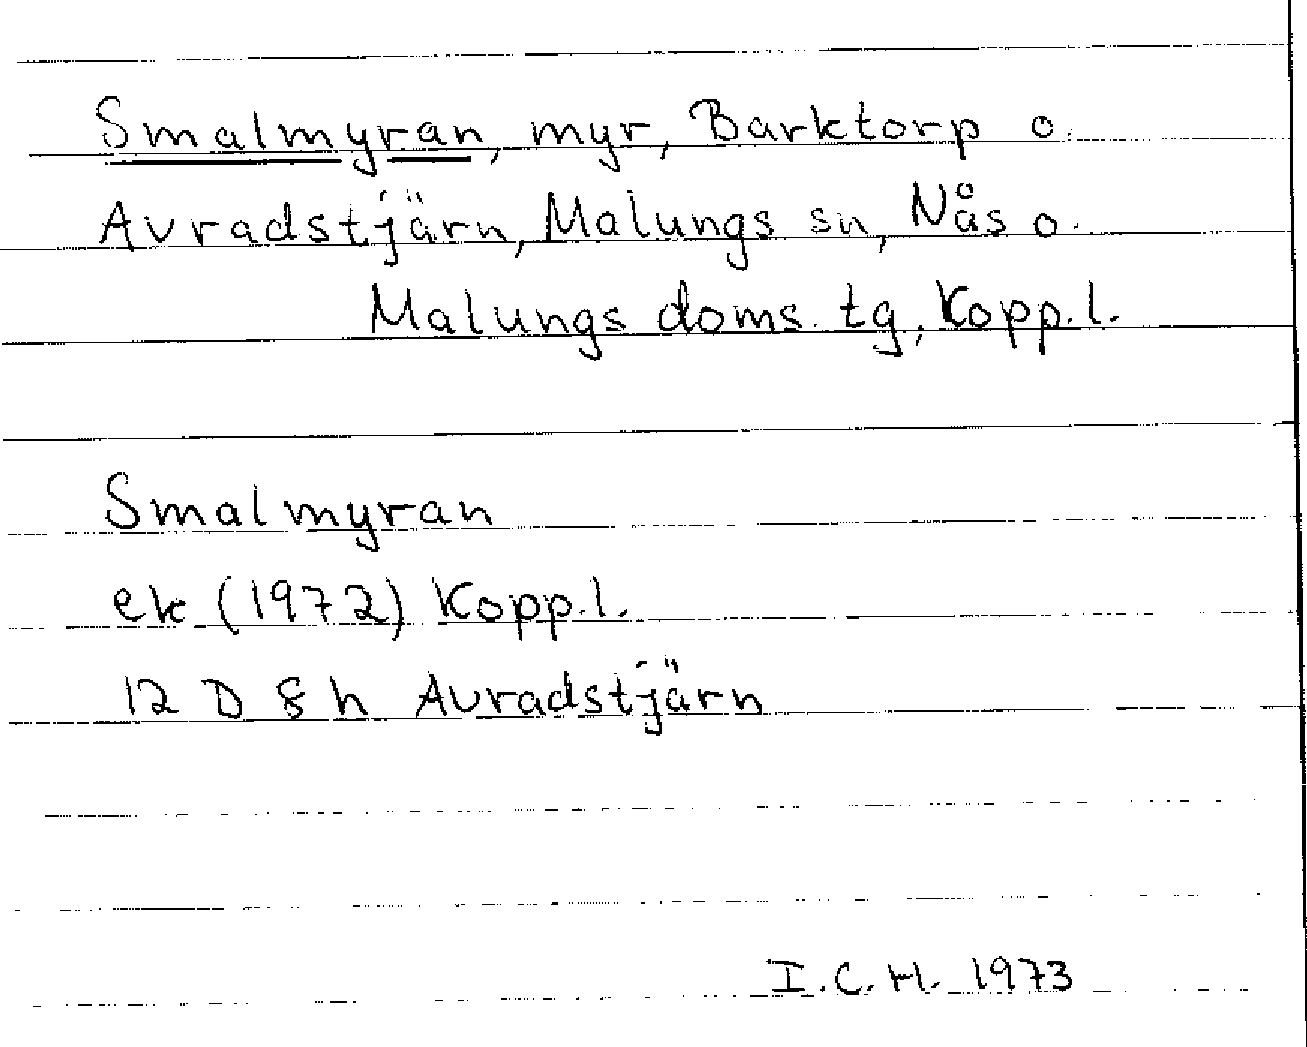 Smalmyran, myr, Barktorp o.
Avradstjärn, Malungs sn, Nås o.
Malungs doms. tg, Kopp.l.
Smalmyran
ek (1972) Kopp.l.
12 D 8 h Avradstjärn
I.C.H. 1973